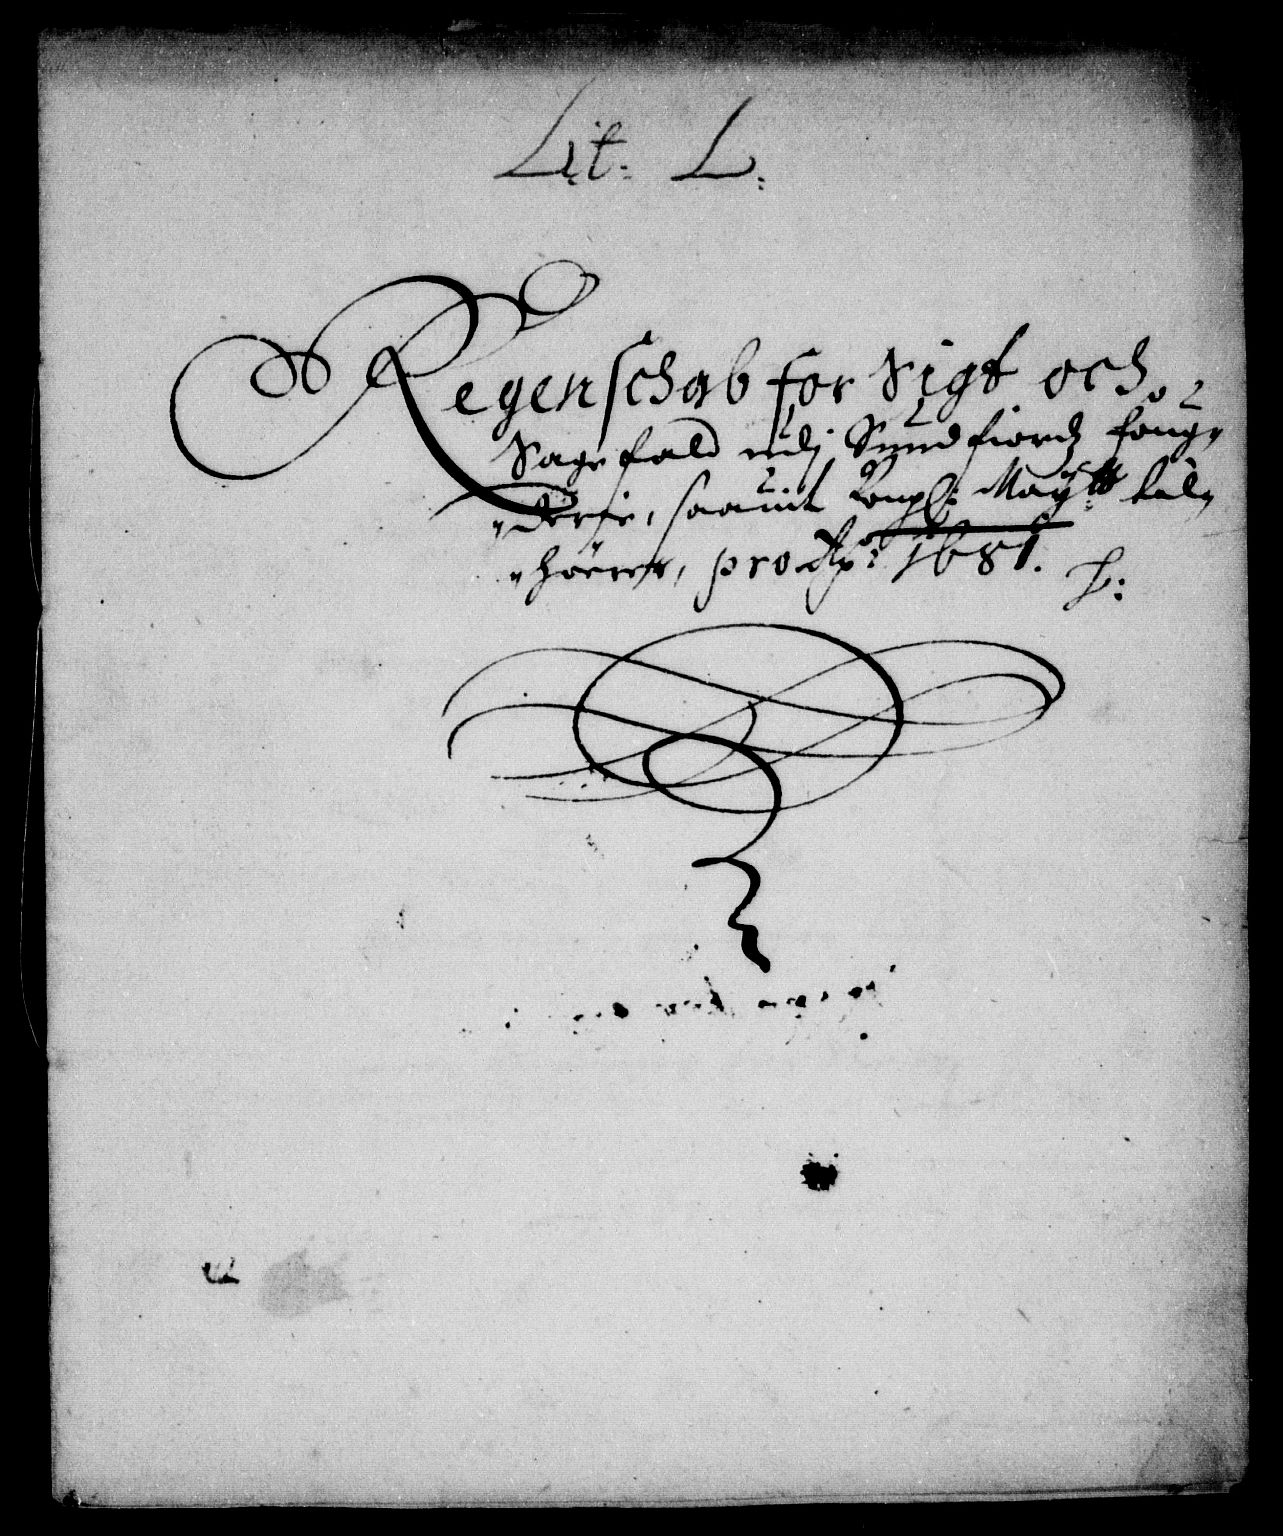 Lit: L:
Regenschab for Sigt och
Sagefald udj Sundfiordz foug-
derie, saauit Kongl: Maÿ:tt til-
hörer, pro A:o 1681.